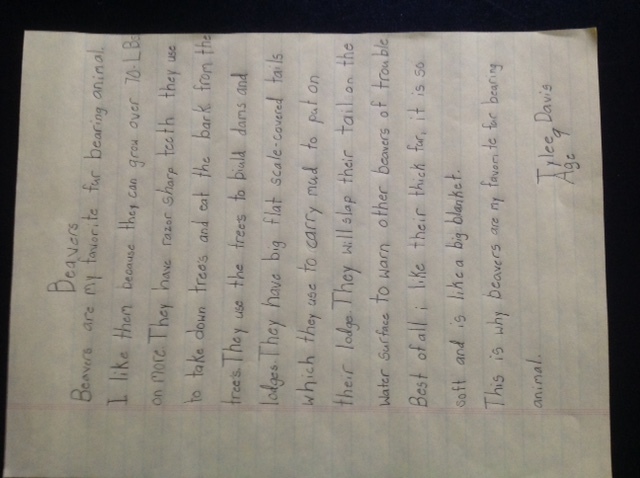 Beavers
Beavers are my favorite fur bearing animal.
I like them because they can grow over 70-LBs
on more They have razor sharp teeth they use
to take down trees and eat the bark from the
trees. They use the trees to biuld dams and
lodges. They have big flat scale-covered tails
which they use to carry mud to put on
their lodge. They will slap their tail on the
water surface to warn other beavers of trouble
Best of all i like their thick fur, it is so
soft and is like a big blanket.
This is why beavers are my favorite fur bearing
animal.
Tylee Davis
Age 9